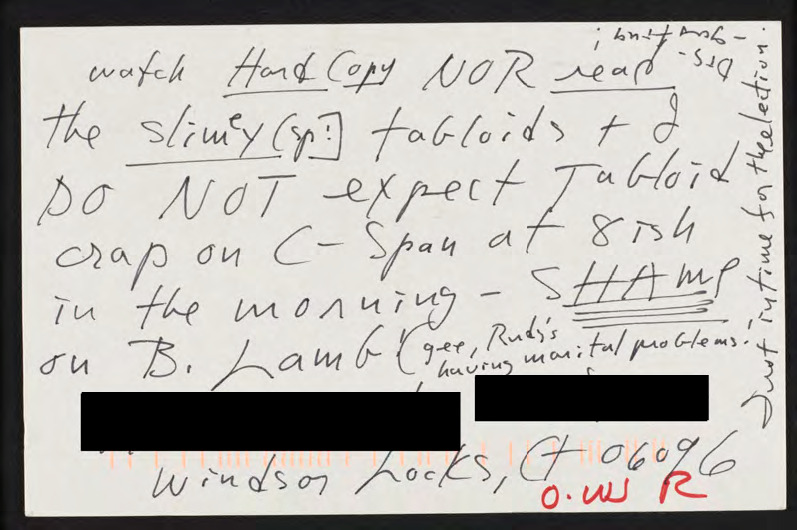 watch Hard Copy NOR read
the slimey (sp?] tabloids + I
DO NOT expect Tabloid
crap on C-Span at 8ish
in the morning - SHAME
on B. Lamb! (gee, Rudy's
having marital problems!
Just in time for the election.
Windsor Locks, Ct 06096
R